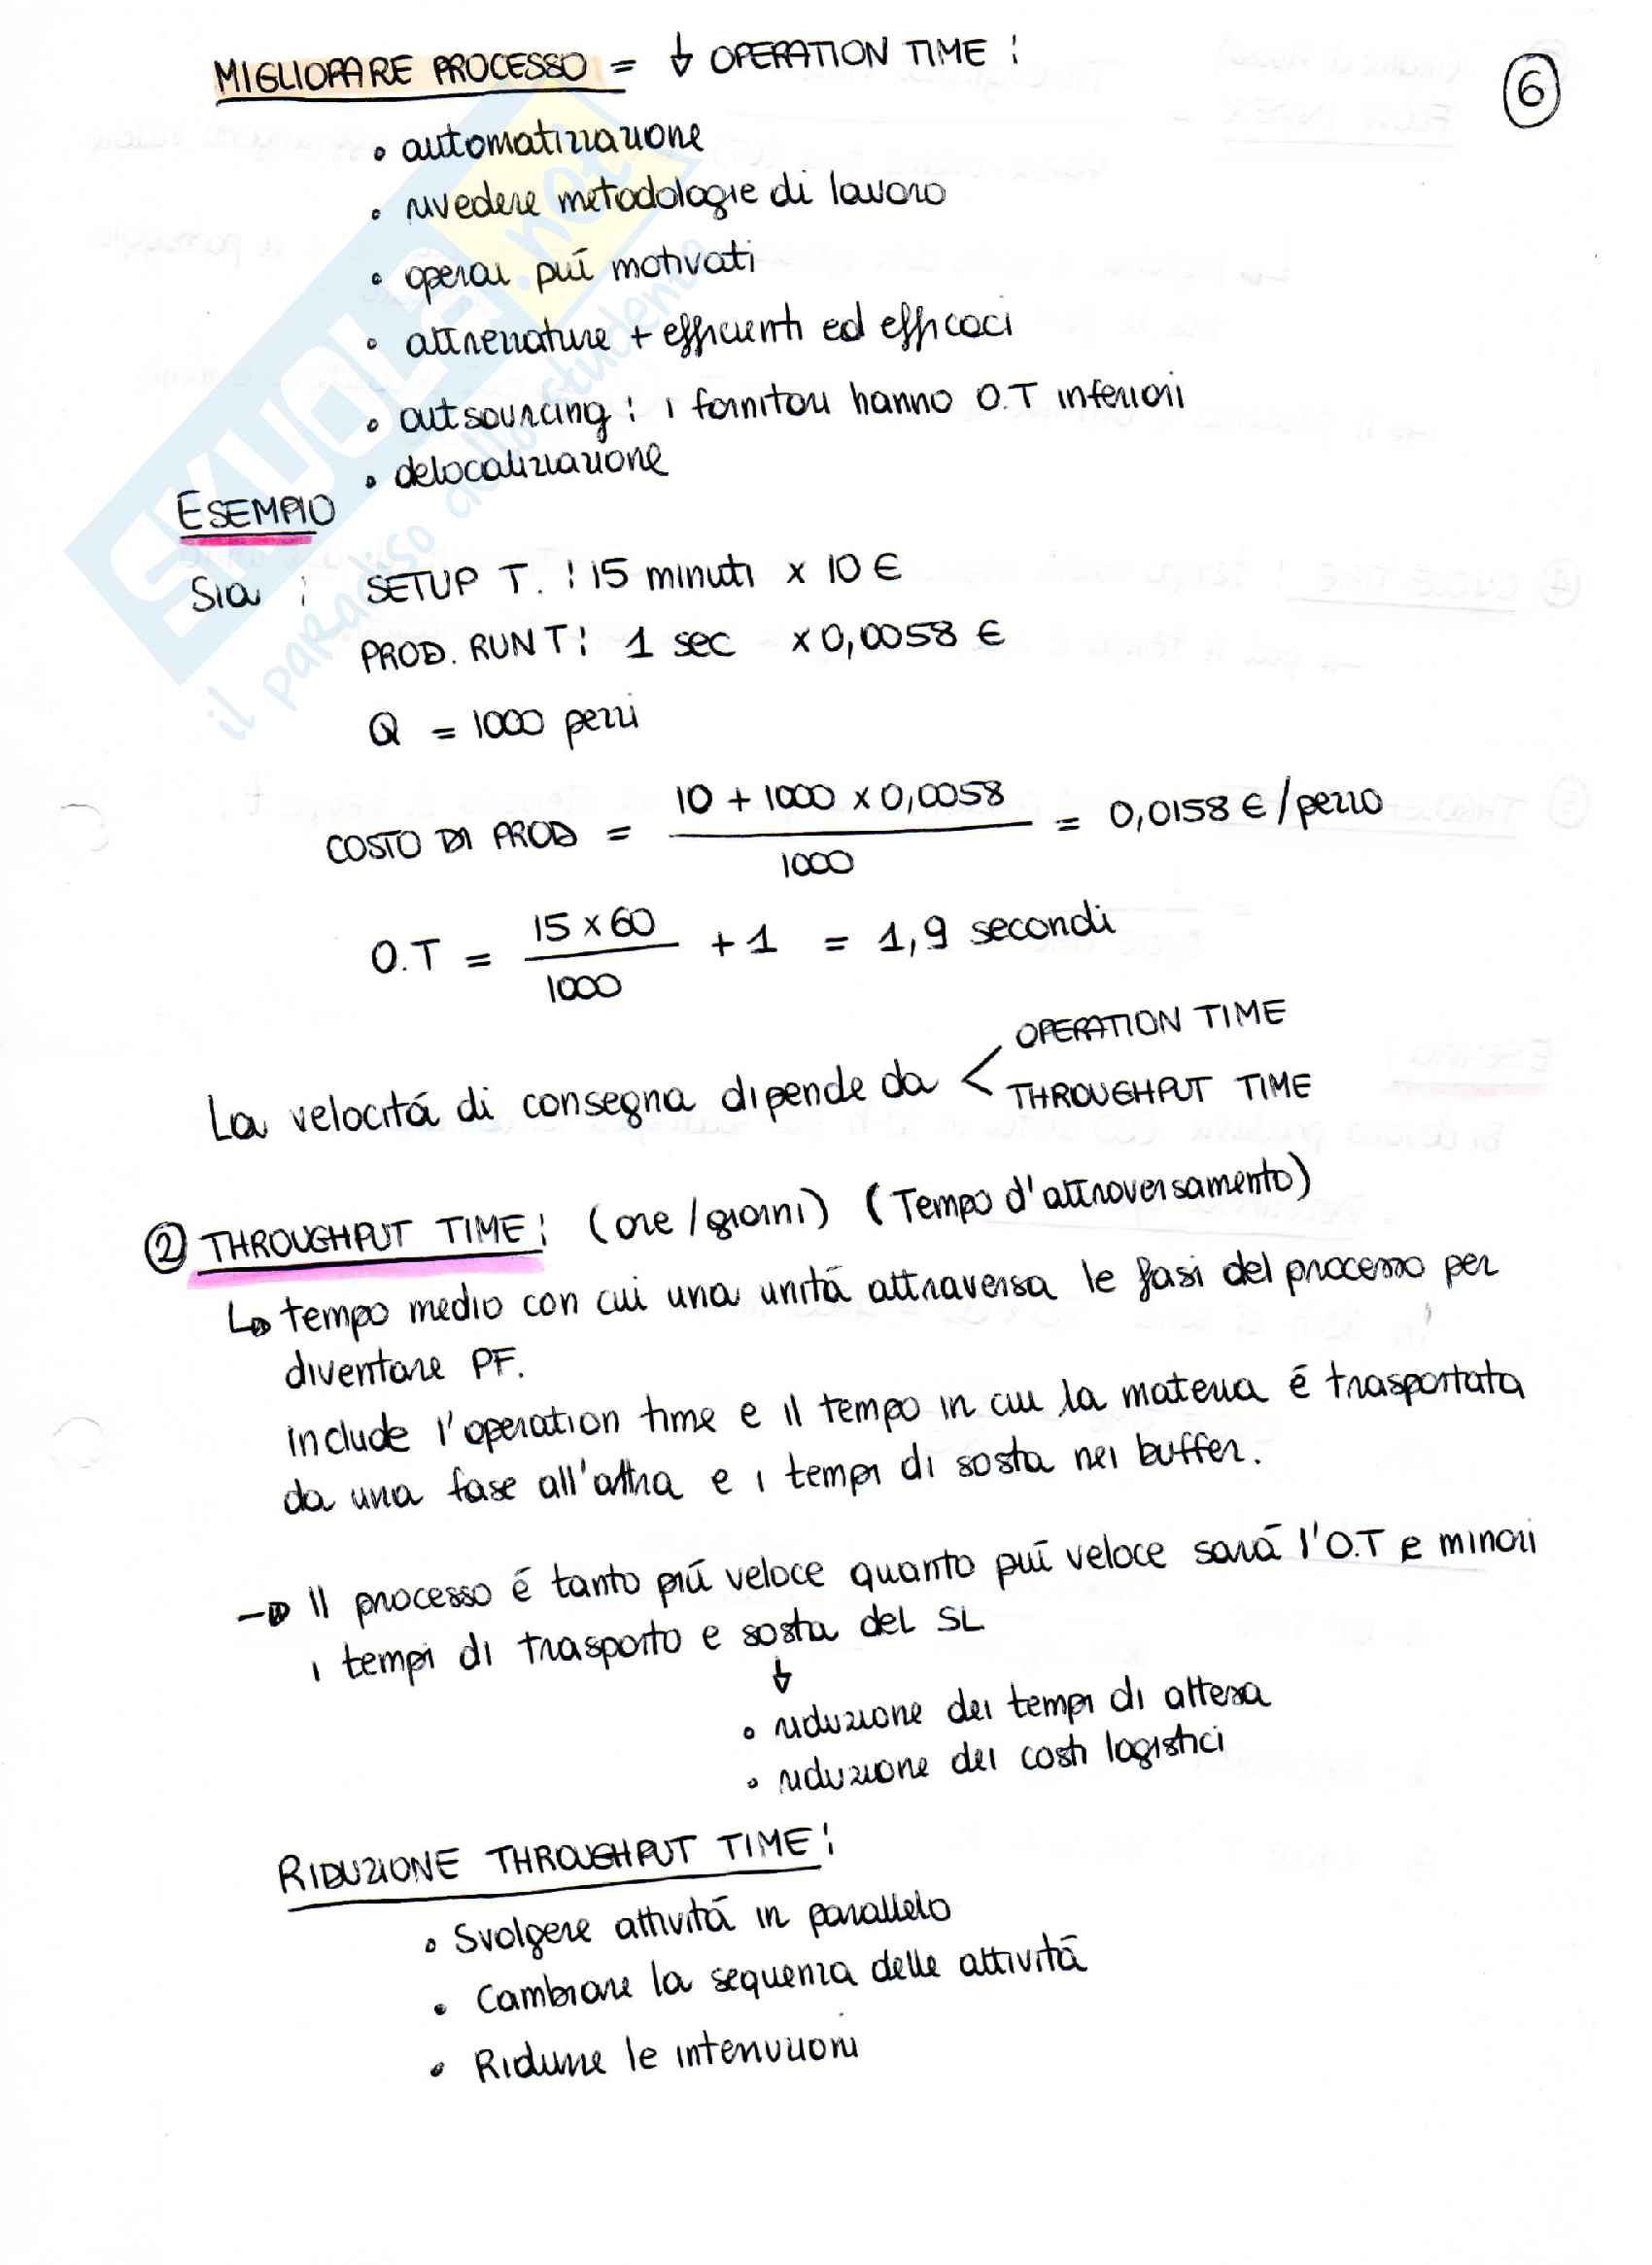 MIGLIORARE PROCESSO = ↓ OPERATION TIME :
6
• automatizzazione
• rivedere metodologie di lavoro
• operai più motivati
• attrezzature + efficienti ed efficaci
• outsourcing : i fornitori hanno O.T inferiori
• delocalizzazione
ESEMPIO
Sia : SETUP T. : 15 minuti x 10 €
PROD. RUN T : 1 sec x 0,0058 €
Q = 1000 pezzi
COSTO DI PROD = 10 + 1000 x 0,0058 / 1000 = 0,0158 € / pezzo
O.T = 15 x 60 / 1000 + 1 = 1,9 secondi
La velocità di consegna dipende da < OPERATION TIME
THROUGHPUT TIME
② THROUGHPUT TIME : (ore / giorni) (Tempo d'attraversamento)
↳ tempo medio con cui una unità attraversa le fasi del processo per
diventare PF.
include l'operation time e il tempo in cui la materia é trasportata
da una fase all'altra e i tempi di sosta nei buffer.
→ Il processo é tanto più veloce quanto più veloce sarà l'O.T e minori
i tempi di trasporto e sosta del SL
↓
• riduzione dei tempi di attesa
• riduzione dei costi logistici
RIDUZIONE THROUGHPUT TIME :
• Svolgere attività in parallelo
• Cambiare la sequenza delle attività
• Ridurre le interruzioni
SKUOLA.net
il paradiso dello studente